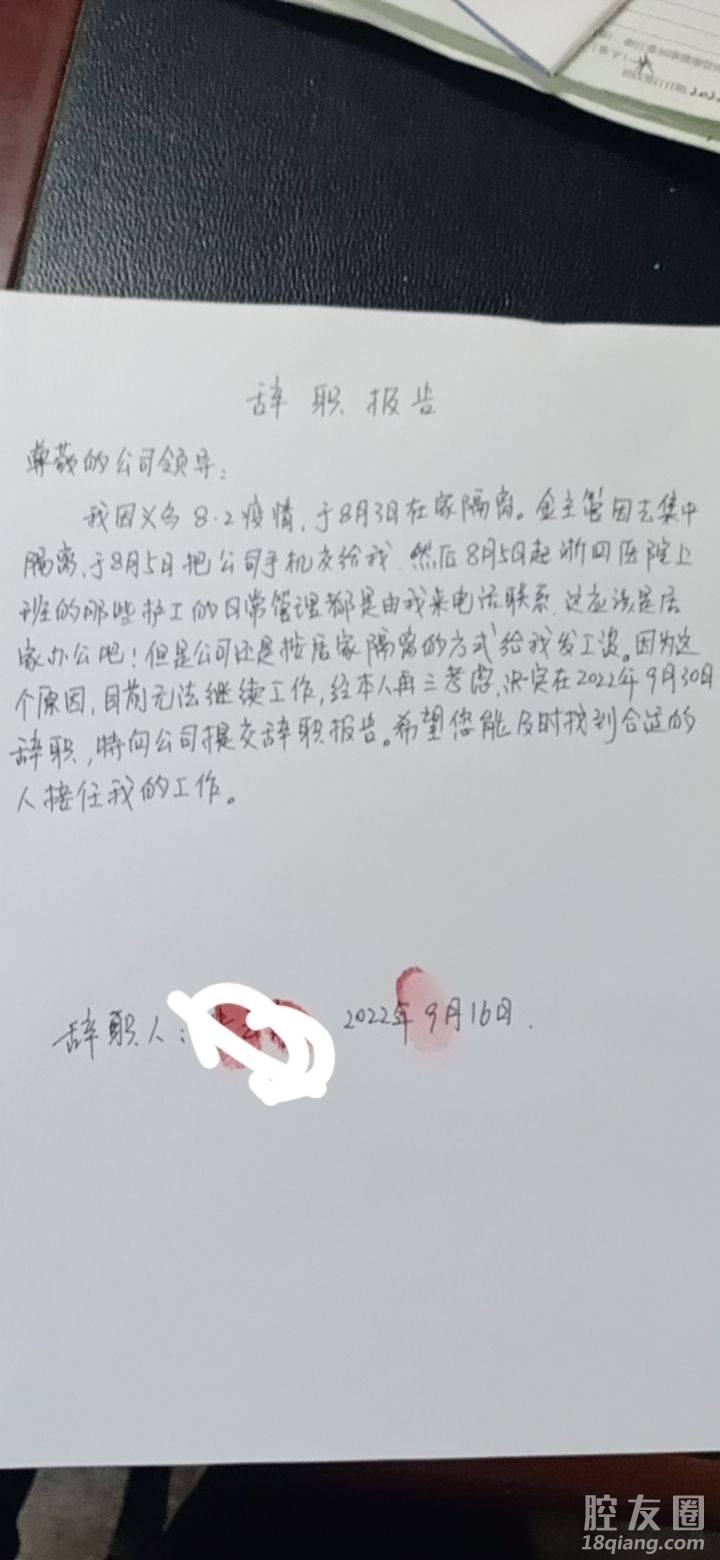 辞职报告
尊敬的公司领导：
我因义乌8.2疫情，于8月3日在家隔离。金主管因去集中
隔离，于8月5日把公司手机交给我，然后8月5日起浙四医院上
班的那些护工的日常管理都是由我来电话联系，这应该是居
家办公吧！但是公司还是按居家隔离的方式给我发工资。因为这
个原因，目前无法继续工作，经本人再三考虑，决定在2022年9月30日
辞职，特向公司提交辞职报告。希望您能及时找到合适的
人接任我的工作。
辞职人：
2022年9月16日.
腔友圈
18qiang.com